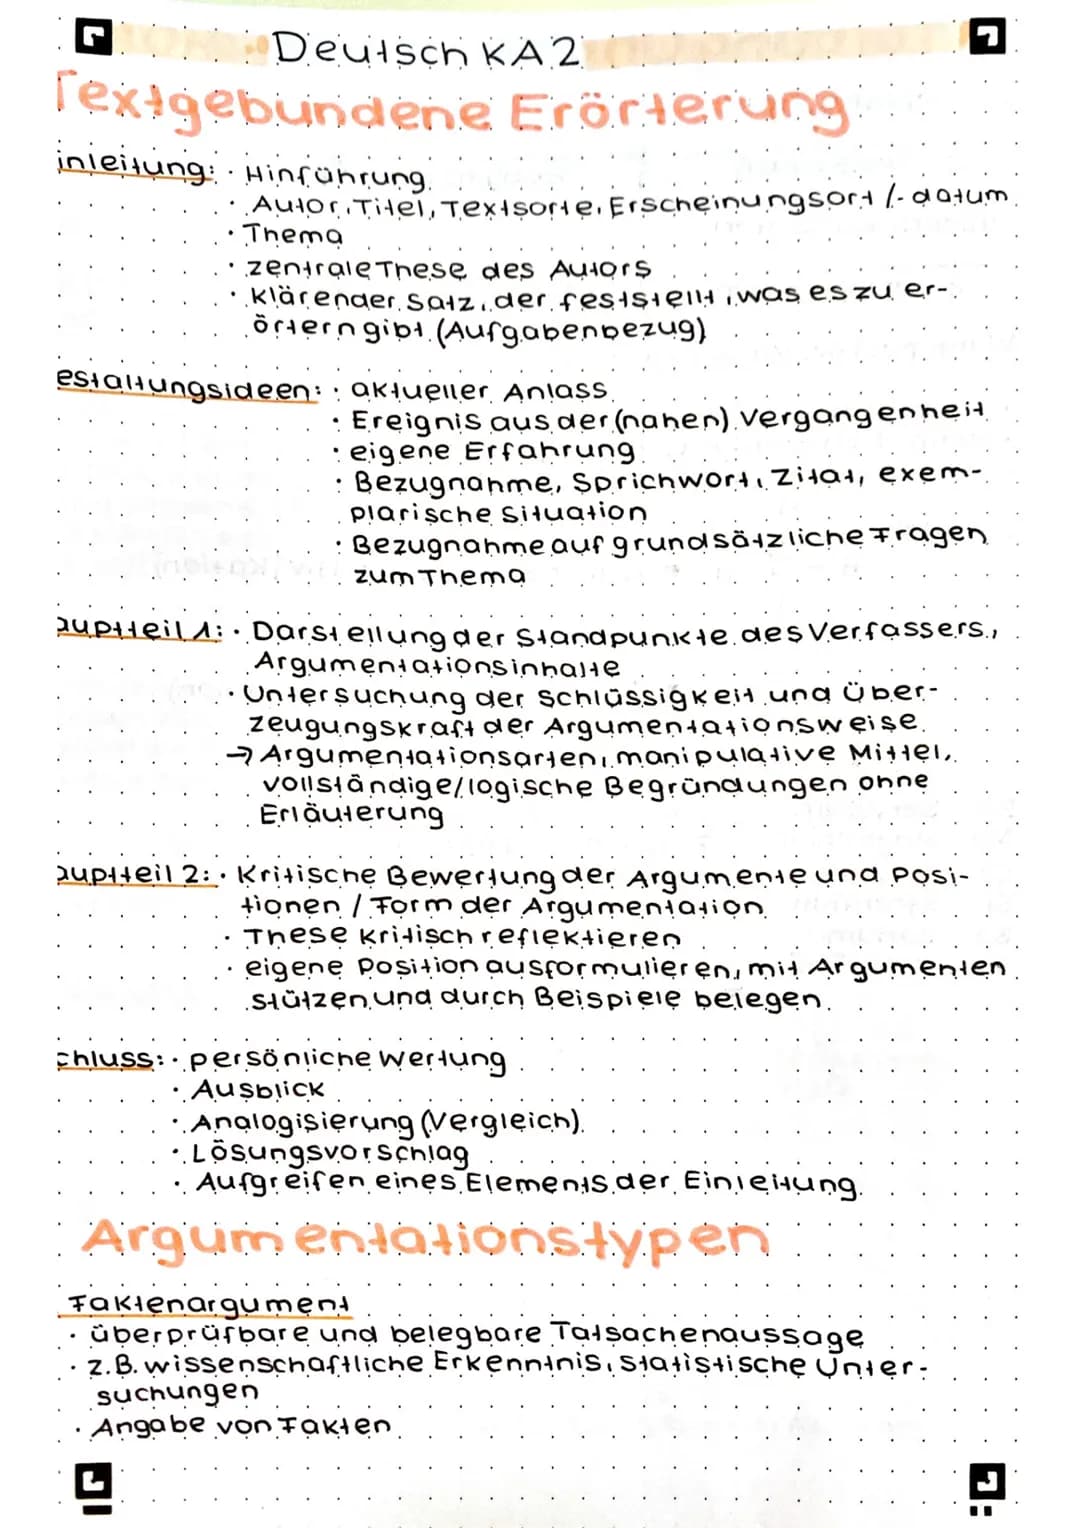 Deutsch KA 2
Textgebundene Erörterung
inleitung: · Hinführung
· Autor, Titel, Textsorte, Erscheinungsort /-datum
· Thema
· zentrale These des Autors
· klärender Satz, der feststellt, was es zu er-
örtern gibt (Aufgabenbezug)
estaltungsideen: · aktueller Anlass
· Ereignis aus der (nahen) Vergangenheit
· eigene Erfahrung
· Bezugnahme, Sprichwort, Zitat, exem-
plarische Situation
· Bezugnahme auf grundsätzliche Fragen
zum Thema
auptteil 1: · Darstellung der Standpunkte des Verfassers,
Argumentationsinhalte
· Untersuchung der Schlüssigkeit und Über-
zeugungskraft der Argumentationsweise
→ Argumentationsarten, manipulative Mittel,
vollständige/logische Begründungen ohne
Erläuterung
auptteil 2: · Kritische Bewertung der Argumente und Posi-
tionen / Form der Argumentation
· These kritisch reflektieren
· eigene Position ausformulieren, mit Argumenten
stützen und durch Beispiele belegen
chluss: · persönliche Wertung
· Ausblick
· Analogisierung (Vergleich)
· Lösungsvorschlag
· Aufgreifen eines Elements der Einleitung
Argumentationstypen
Faktenargument
· überprüfbare und belegbare Tatsachenaussage
· z.B. wissenschaftliche Erkenntnis, statistische Unter-
suchungen
· Angabe von Fakten